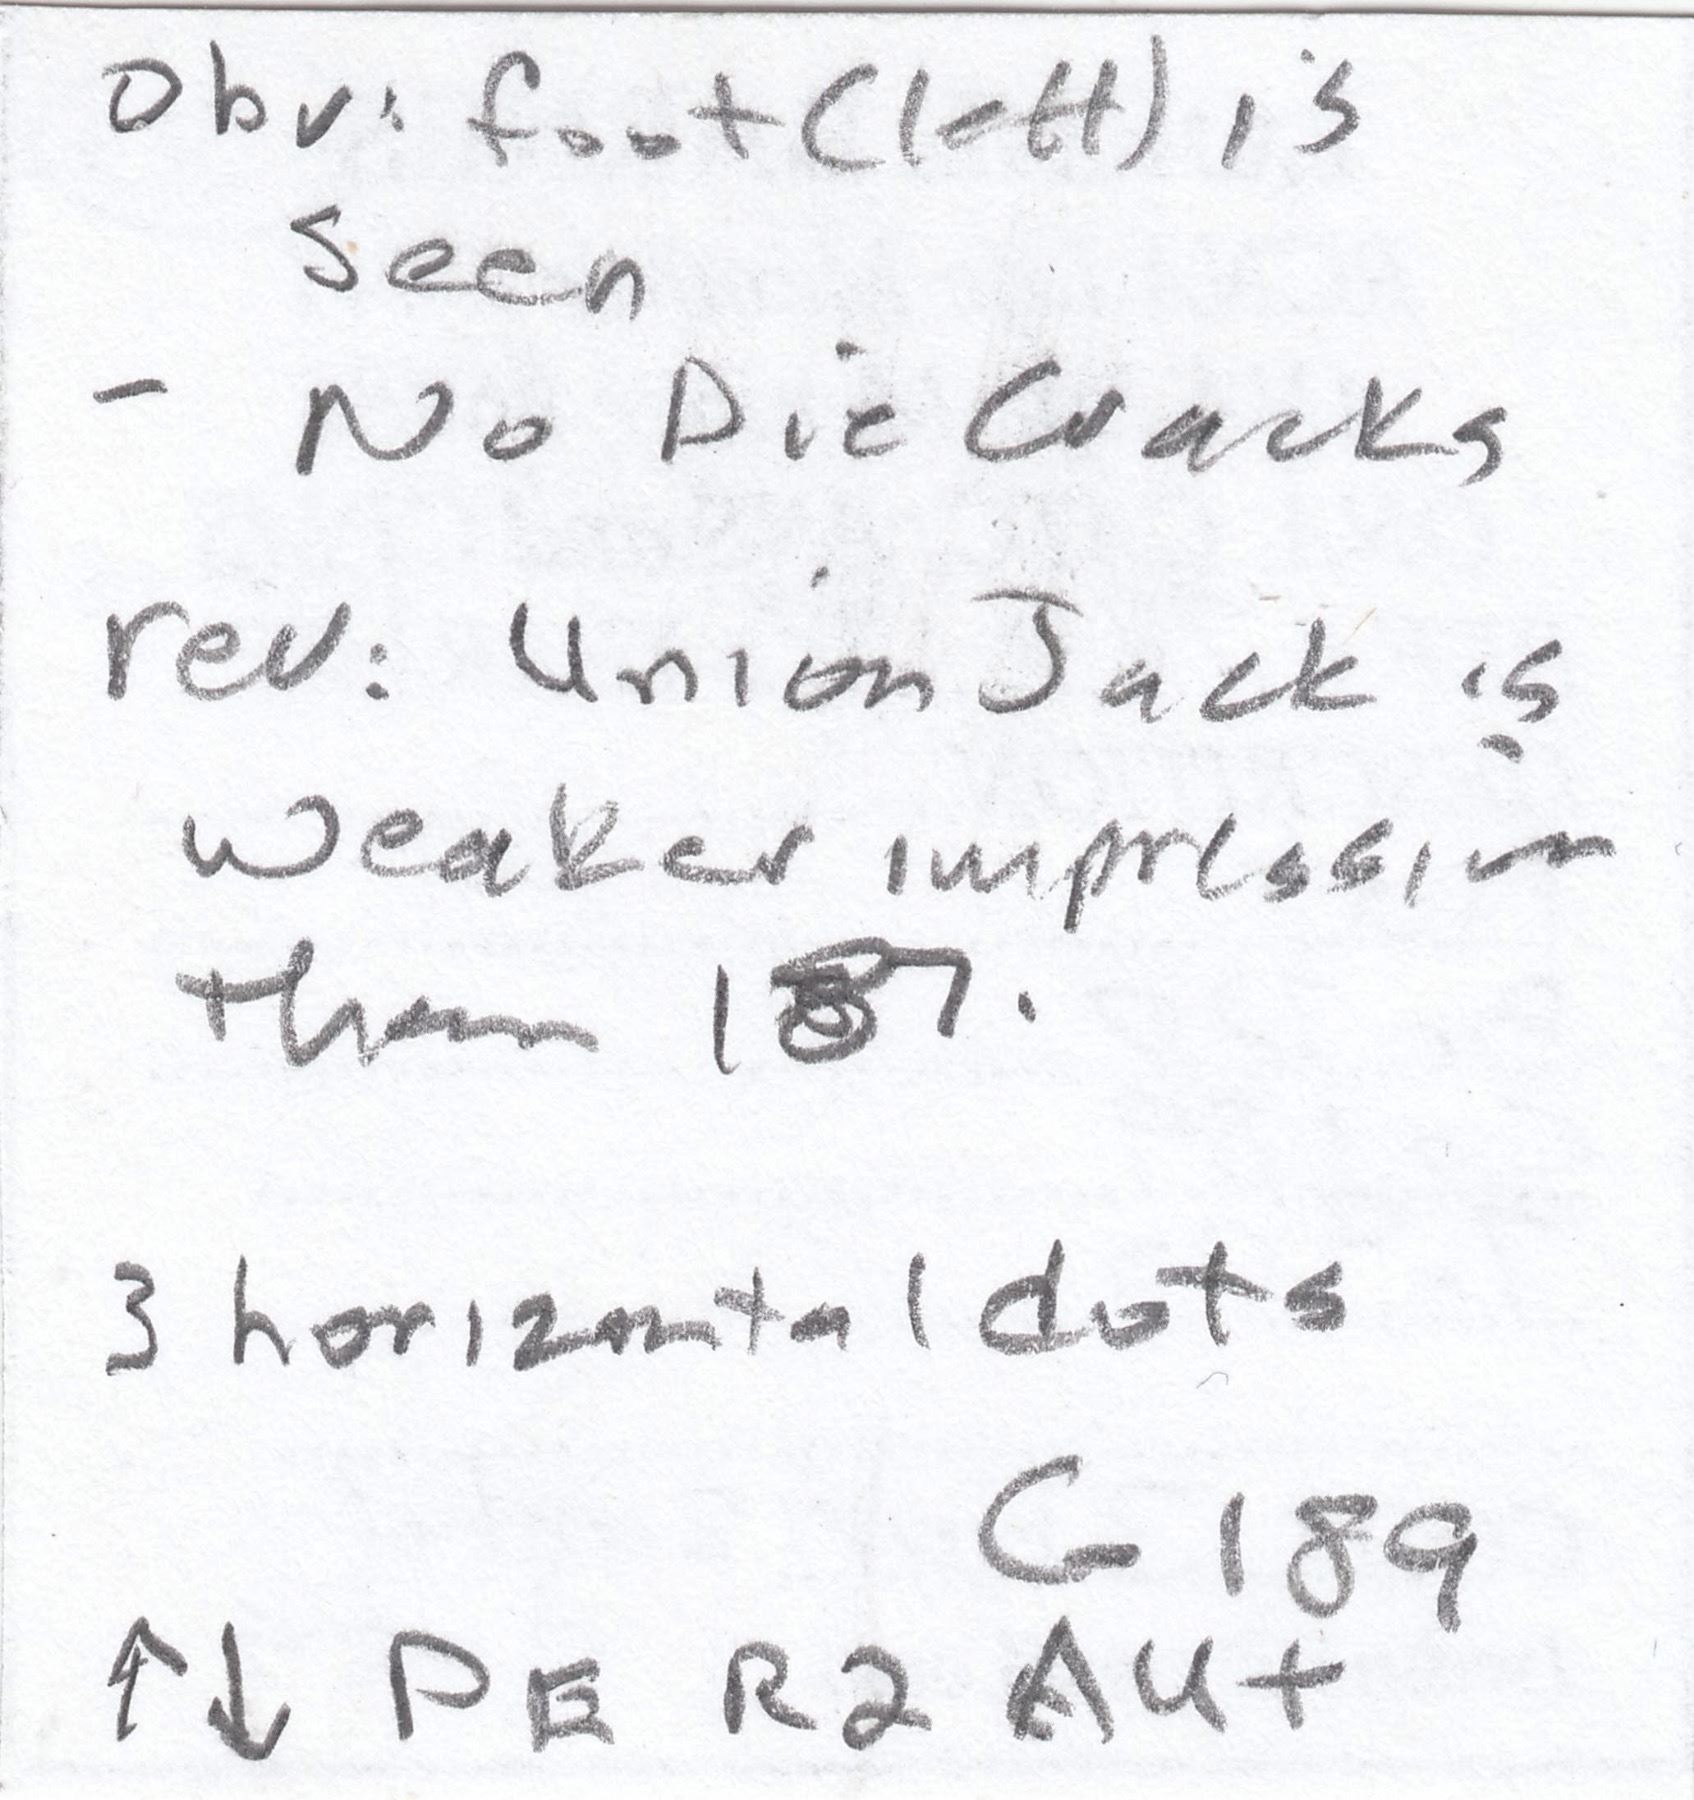 Obv: foot (left) is
seen
- No Die Cracks
rev: Union Jack is
weaker impression
than 187.
3 horizontal dots
C 189
↑↓ PE R2 AU+